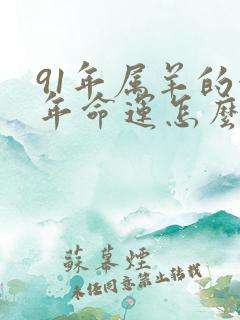 91年属羊的
年命运怎麽
蘇幕煙
未经同意禁止转载